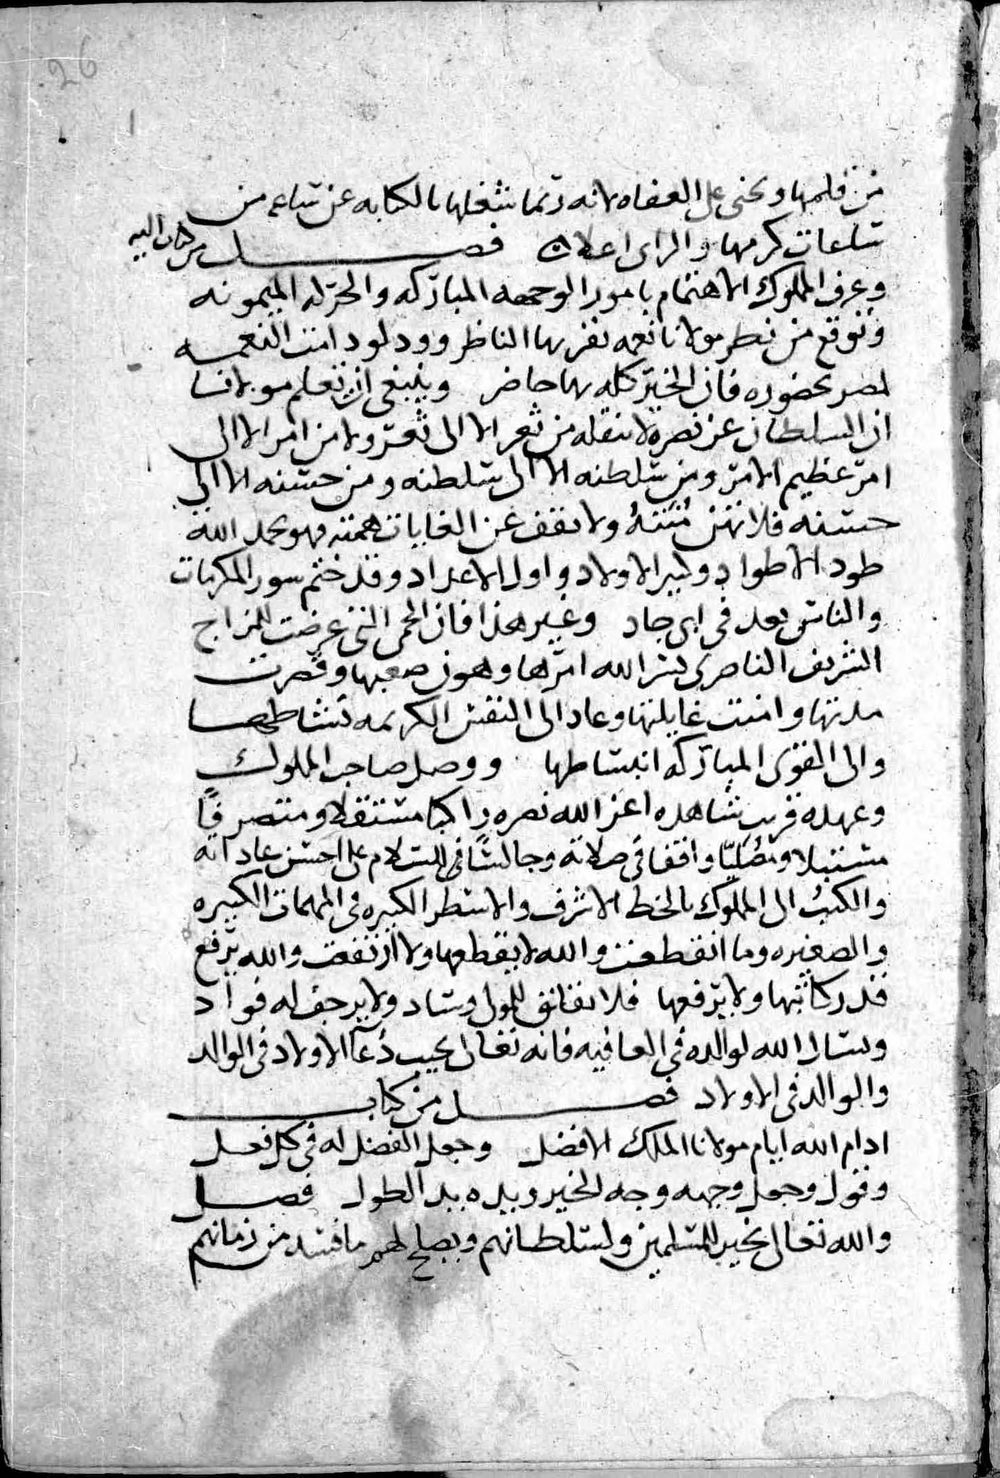 26
من قلمها ونحني على العفاه لانه ربما شغلها بالكتابه عن ساعه من
ساعات كرمها والراى اعلا ان فصل من كتاب اليه
وعرف المملوك الاهتمام بامور الوجهه المباركه والحركه الميمونه
ونتوقع من نظر مولانا نعمه تقر بها النواظر وود لو دامت النعمه
لمصر بحضوره فان الخير كله بها حاضر وينبغى ان تعلم مولانا
ان السلطان عز نصره لا ننقله من ثغر الا الى ثغر ولا من امر الا الى
امر عظيم الامر ومن سلطنه الا الى سلطنه ومن حسنه الا الى
حسنه فلا تهن مُنَّتهُ ولا تقف عن الغايات همته فهو بحمد الله
طود الاطواد وكبير الاولاد واول الاعداد وقد ختم سور المكرمات
والناس بعد في ابى جاد وغير هذا فان الحمى التى عرضت للمزاج
الشريف الناصرى يسر الله امرها وهون صعبها وقصرت
مدتها وامنت غايلتها وعاد الى النفس الكريمه نشاطها
والى القوى المباركه انبساطها ووصل صاحب المملوك
وعهده قريب شاهده اعز الله نصره راكبا مستقلا ومتصرفًا
مستقبلا ومصليّا واقفا في صلاته وجالسًا في السلام على احسن عاداته
والكتبُ الى المملوك بالخط الاشرف والاسطر الكبيره في المهمات الكبيره
والصغيره وما انقطعت والله لا يقطعها ولا ارتفعت والله يرفع
قدر كاتبها ولا يرفعها فلا يقلق للمولى وساد ولا يرجف له فواد
ويسال الله لوالده في العافيه فانه تعالى يجيب دُعآ الاولاد في الوالد
والوالد في الاولاد فصل من كتاب
ادام الله ايام مولانا الملك الافضل وجعل الفضل له في كل فعل
وقول وجعل وجهه وجه الخير ويده يد الطول فصل
والله تعالى يخير للمسلمين ولسلطانهم ويصلح لهم ما فسد من زمانهم